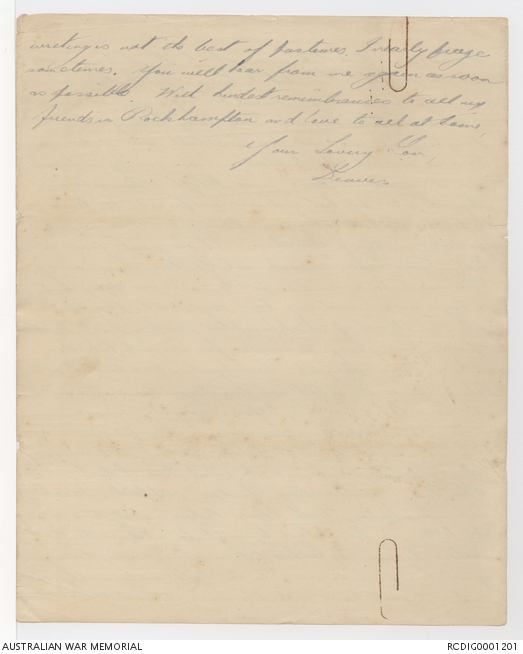 writing is not the best of pastimes. I nearly freeze
sometimes. You will hear from me again as soon
as possible. With kindest remembrances to all my
friends in Rockhampton and love to all at home,
Your Loving Son,
AUSTRALIAN WAR MEMORIAL
RCDIG0001201